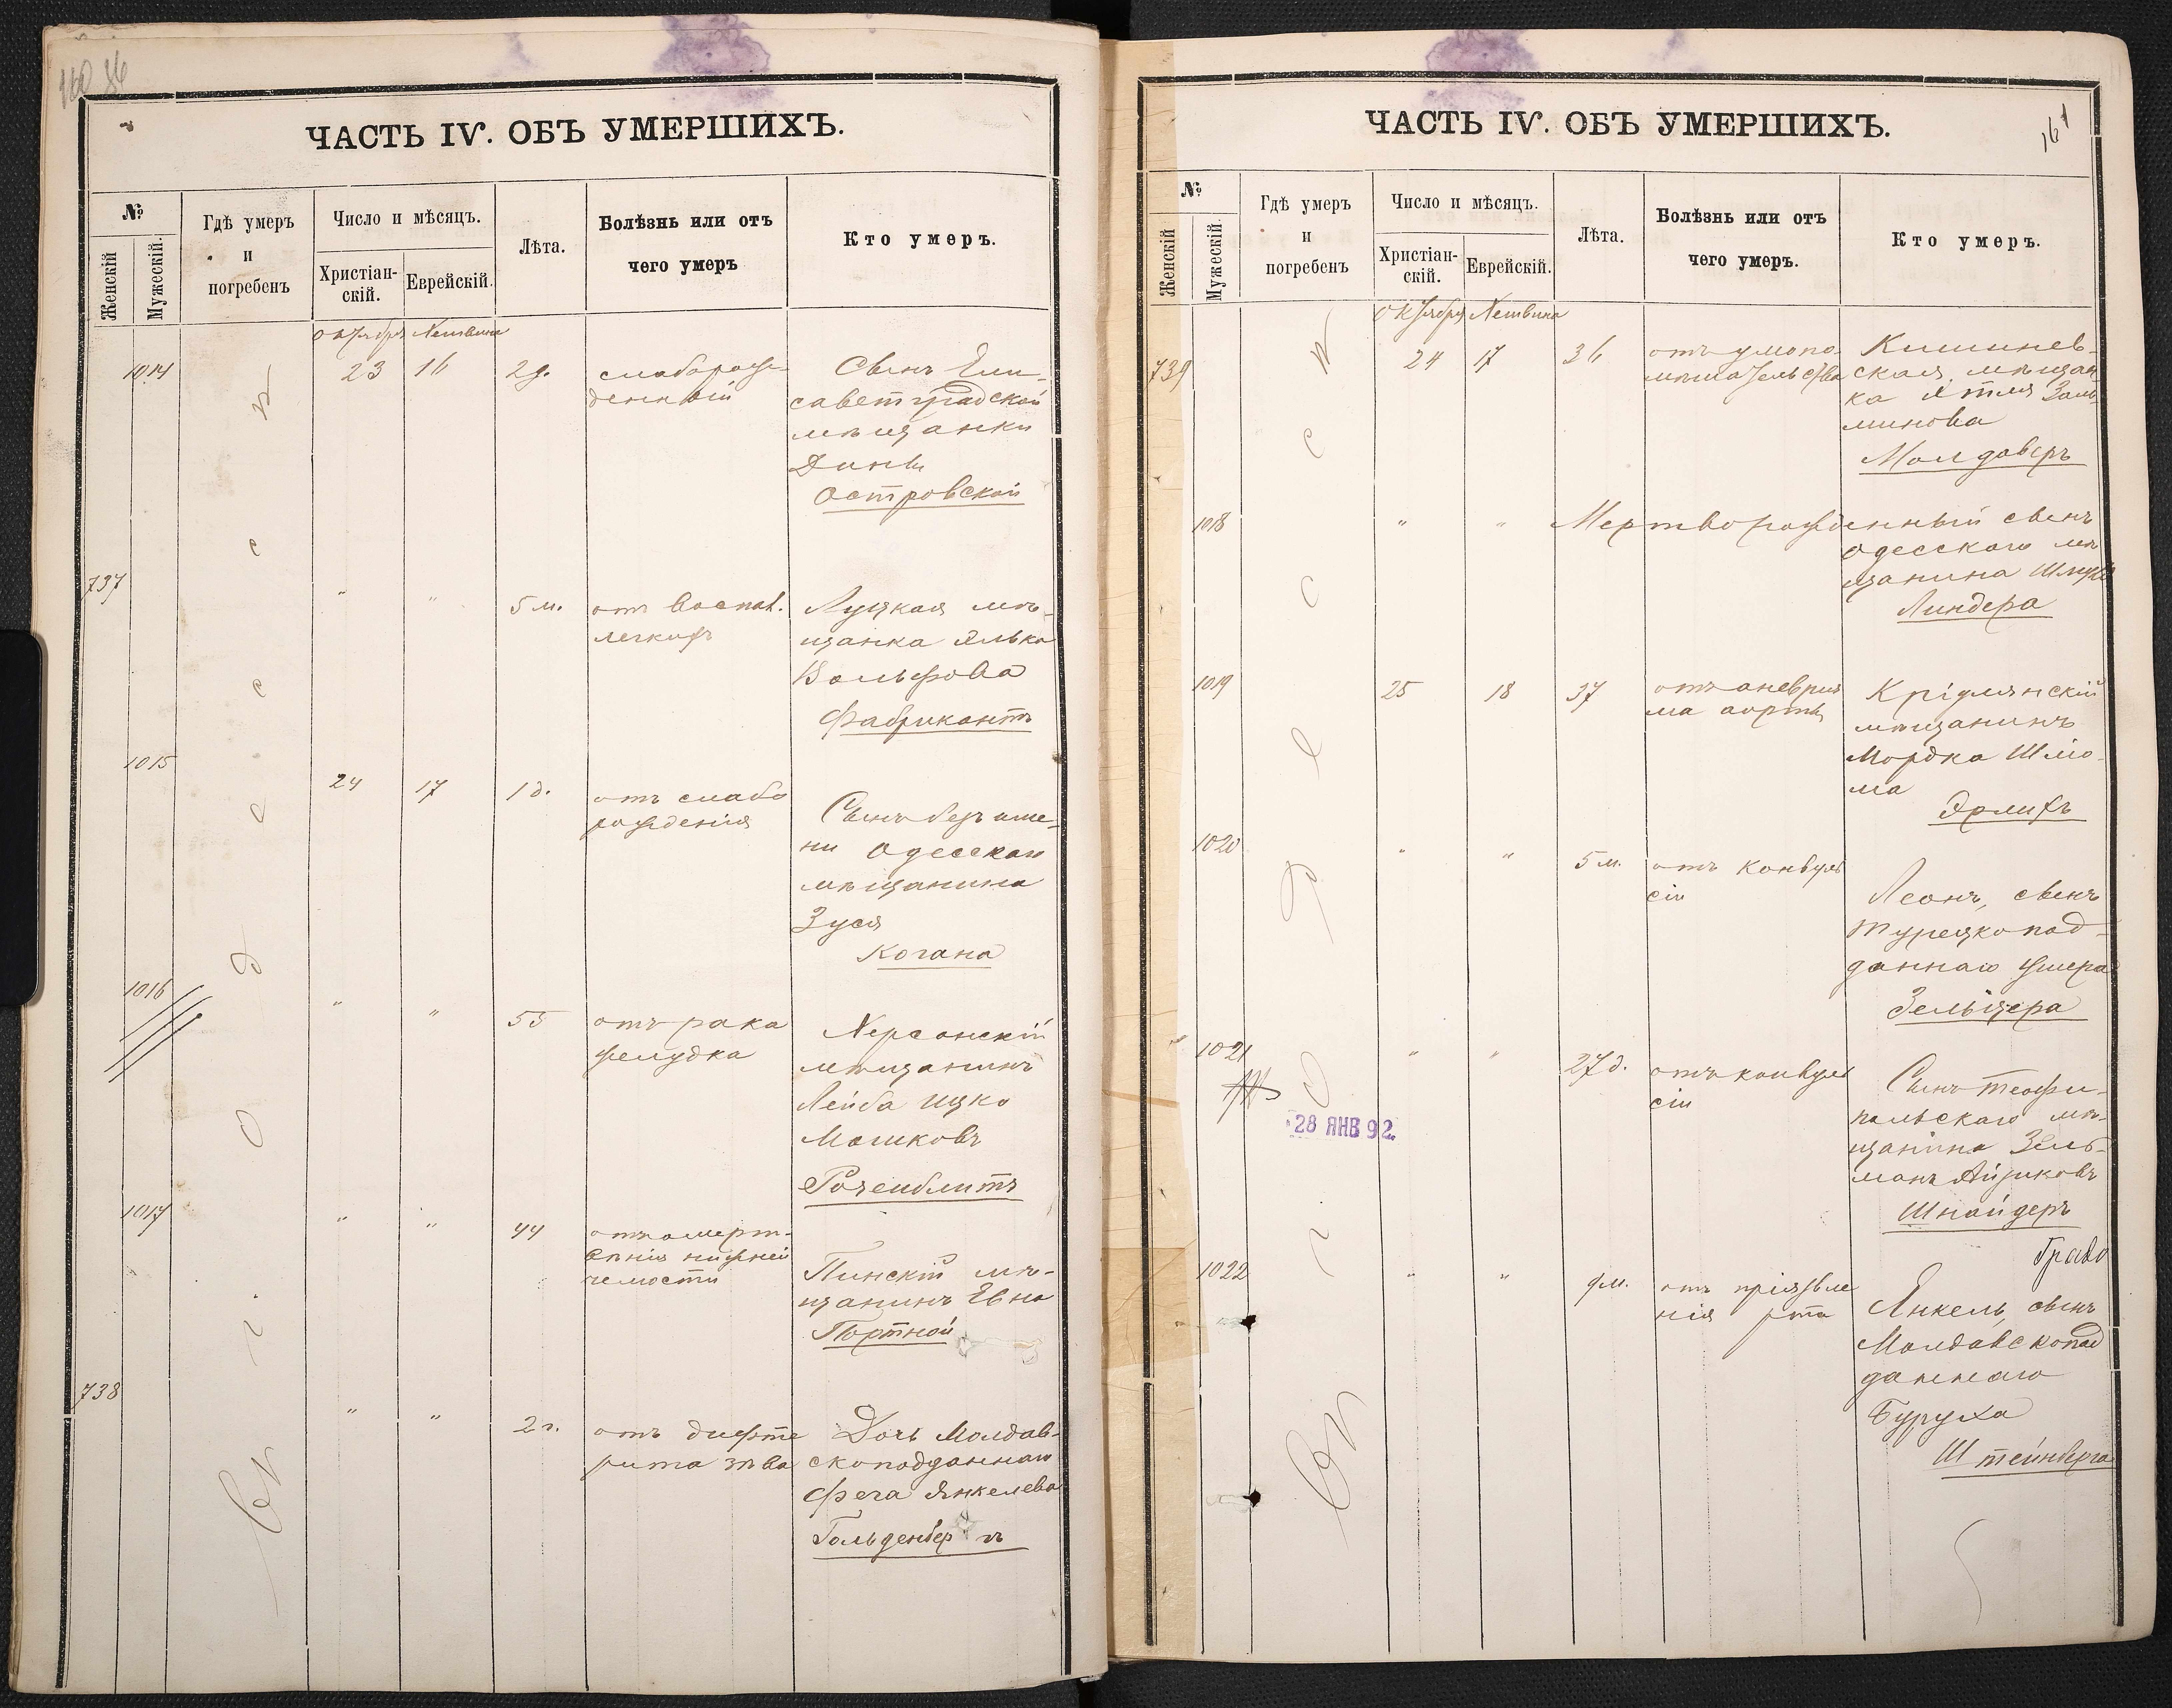 160 86
ЧАСТЬ IV. ОБЪ УМЕРШИХЪ.
№
Женскій
Мужескій.
Гдѣ умеръ
и
погребенъ
Число и мѣсяцъ.
Христіан-
скій.
Еврейскій.
Лѣта.
Болѣзнь или отъ
чего умеръ
Кто умеръ.
Въ г. Одессѣ
Октября Хешвина
1014 23 16 2д. слаборож-
денный
Сынъ Ели-
саветградской
мѣщанки
Дины
Островской
737 " " 5 м. отъ воспал.
легкихъ
Луцкая мѣ-
щанка Элька
Вольфова
Фабрикантъ
1015 24 17 1 д. отъ слабо
рожденія
Сынъ безъ име-
ни Одесскаго
мѣщанина
Зуся
Когана
1016 " " 55 отъ рака
желудка
Херсонскій
мѣщанинъ
Лейба Ицко
Мошковъ
Розенблитъ
1017 " " 44 отъ омерт-
вѣнія нижней
челюсти
Пинскій мѣ-
щанинъ Евно
Портной
738 " " 2 г. отъ дифте
рита зѣва
Дочь Молдав-
скоподданнаго
Фейга Янкелева
Гольденбергъ
161
ЧАСТЬ IV. ОБЪ УМЕРШИХЪ.
№
Женскій
Мужескій.
Гдѣ умеръ
и
погребенъ
Число и мѣсяцъ.
Христіан-
скій.
Еврейскій.
Лѣта.
Болѣзнь или отъ
чего умеръ.
Кто умеръ.
Въ г. Одессѣ
Октября Хешвина
739 24 17 36 отъ умопо-
мѣшательства
Кишинев-
ская мѣщан
ка Этля Заль
минова
Молдаверъ
1018 " " Мертворожденный сынъ
Одесскаго мѣ
щанина Шмуля
Линдера
1019 25 18 37 отъ аневриз
ма аорты
Кріулянскій
мѣщанинъ
Мордка Шлио-
ма
Эрлихъ
1020 " " 5 м. отъ конвуль
сіи
Леонъ, сынъ
Турецкопод-
даннаго Ушера
Зельцера
1021 " " 27 д. отъ конвуль
сіи
Сынъ Теофи-
польскаго мѣ-
щанина Зель-
манъ Айзиковъ
Шнайдеръ
28 ЯНВ 92.
1022 " " 9 м. отъ
рта
Янкель, сынъ
Молдавскопод
даннаго
Буруха
Штейнберга